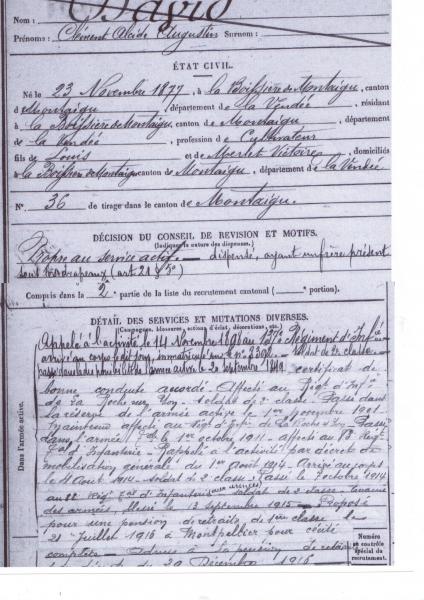 Nom :
Prénoms: Clément Alcide Augustin Surnom :
ÉTAT CIVIL.
Né le 23 Novembre 1877, à la Boissière de Montaigu, canton
d e Montaigu, département d e la Vendée, résidant
à la Boissière de Montaigu, canton d e Montaigu, département
d e la Vendée, profession d e Cultivateur
fils de Louis et de Merlet Victoire, domiciliés
à la Boissière de Montaigu canton d e Montaigu, département d e la Vendée
N° 36 de tirage dans le canton de Montaigu.
DÉCISION DU CONSEIL DE REVISION ET MOTIFS.
(Indiquer la nature des dispenses.)
Propre au service actif — dispensé, ayant un frère présent
sous les drapeaux (art 21 § 5°)
Compris dans la 2e partie de la liste du recrutement cantonal ( portion).
DÉTAIL DES SERVICES ET MUTATIONS DIVERSES.
Campagnes, blessures, actions d'éclat, décorations, etc.
Appelé à l'activité, le 14 Novembre 1898 au 137e Régiment d'Infie
arrivé au corps ledit jour, immatriculé sous le n° soldat de 2e classe
passé dans la disponibilité de l'armée active le 20 septembre 1899 certificat de
bonne conduite accordé. Affecté au Régt d'Infie
de La Roche sur Yon. Soldat de 2e classe. Passé dans
la réserve de l'armée active le 1er novembre 1901
Maintenu affecté au Régt d'Infie de La Roche s Yon. Passé
dans l'armée Tale le 1er octobre 1911 affecté au 83 Régt
Tal d'Infanterie. Rappelé à l'activité par décret de
mobilisation générale du 1er août 1914. Arrivé au corps
le août 1914. Soldat de 2e classe. Passé le 7 octobre 1914
au Régt Tal d'Infanterie (aux armées) soldat de 2e classe.
des armées, blessé le 13 septembre 1915 Proposé
pour une pension de retraite de 1ère classe le
21 Juillet 1916 à Montpellier pour cécité
complète. Admis à la pension de retraite
29 Décembre 1916
Dans l'armée active.
Numéro
au contrôle
spécial du
recrutement.